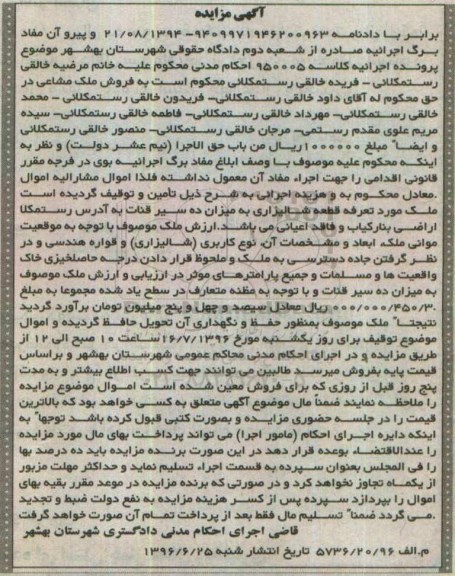 آگهی مزایده
برابر با دادنامه ۹۴۰۹۹۷۱۹۴۶۲۰۰۹۶۳- ۲۱/۰۸/۱۳۹۴ و پیرو آن مفاد
برگ اجرائیه صادره از شعبه دوم دادگاه حقوقی شهرستان بهشهر موضوع
پرونده اجرائیه کلاسه ۹۵۰۰۰۵ احکام مدنی محکوم علیه خانم مرضیه خالقی
رستمکلائی - فریده خالقی رستمکلائی محکوم است به فروش ملک مشاعی در
حق محکوم له آقای داود خالقی رستمکلائی- فریدون خالقی رستمکلائی - محمد
خالقی رستمکلائی- مهرداد خالقی رستمکلائی- فاطمه خالقی رستمکلائی- سیده
مریم علوی مقدم رستمی- مرجان خالقی رستمکلائی- منصور خالقی رستمکلائی
و ایضاً مبلغ ۱۰۰۰۰۰۰ ریال من باب حق الاجرا (نیم عشر دولت) و نظر به
اینکه محکوم علیه موصوف با وصف ابلاغ مفاد برگ اجرائیه بوی در فرجه مقرر
قانونی اقدامی را جهت اجراء مفاد آن معمول نداشته فلذا اموال مشارالیه اموال
.معادل محکوم به و هزینه اجرائی به شرح ذیل تأمین و توقیف گردیده است
ملک مورد تعرفه قطعه شالیزاری به میزان ده سیر قنات به آدرس رستمکلا
اراضی بنارکیاب و فاقد اعیانی می باشد.ارزش ملک موصوف با توجه به موقعیت
موانی ملک، ابعاد و مشخصات آن، نوع کاربری (شالیزاری) و قواره هندسی و در
نظر گرفتن جاده دسترسی به ملک و ملحوظ قرار دادن درجه حاصلخیزی خاک
واقعیت ها و مسلمات و جمیع پارامترهای موثر در ارزیابی و ارزش ملک موصوف
به میزان ده سیر قنات و با توجه به مظنه متعارف در سطح یاد شده مجموعا به مبلغ
۰۰۰/۰۰۰/۴۵۰/۳۰ ریال معادل سیصد و چهل و پنج میلیون تومان برآورد گردید
نتیجتاً ملک موصوف بمنظور حفظ و نگهداری آن تحویل حافظ گردیده و اموال
موضوع توقیف برای روز یکشنبه مورخ ۱۶/۷/۱۳۹۶ ساعت ۱۰ صبح الی ۱۲ از
طریق مزایده و در اجرای احکام مدنی محاکم عمومی شهرستان بهشهر و براساس
قیمت پایه بفروش میرسد طالبین می توانند جهت کسب اطلاع بیشتر و به مدت
پنج روز قبل از روزی که برای فروش معین شده است اموال موضوع مزایده
را ملاحظه نمایند ضمناً مال موضوع آگهی متعلق به کسی خواهد بود که بالاترین
قیمت را در جلسه حضوری مزایده و بصورت کتبی قبول کرده باشد توجهاً به
اینکه دایره اجرای احکام (مامور اجرا) می تواند پرداخت بهای مال مورد مزایده
را عندالاقتضاء بوعده قرار دهد در این صورت برنده مزایده باید ده درصد بها
را فی المجلس بعنوان سپرده به قسمت اجراء تسلیم نماید و حداکثر مهلت مزبور
از یکماه تجاوز نخواهد کرد و در صورتی که برنده مزایده در موعد مقرر بقیه بهای
اموال را بپردازد سپرده پس از کسر هزینه مزایده به نفع دولت ضبط و تجدید
.می گردد ضمناً تسلیم مال فقط بعد از پرداخت تمام آن صورت خواهد گرفت
قاضی اجرای احکام مدنی دادگستری شهرستان بهشهر
م.الف ۵۷۳۶/۲۰/۹۶ تاریخ انتشار شنبه ۱۳۹۶/۶/۲۵